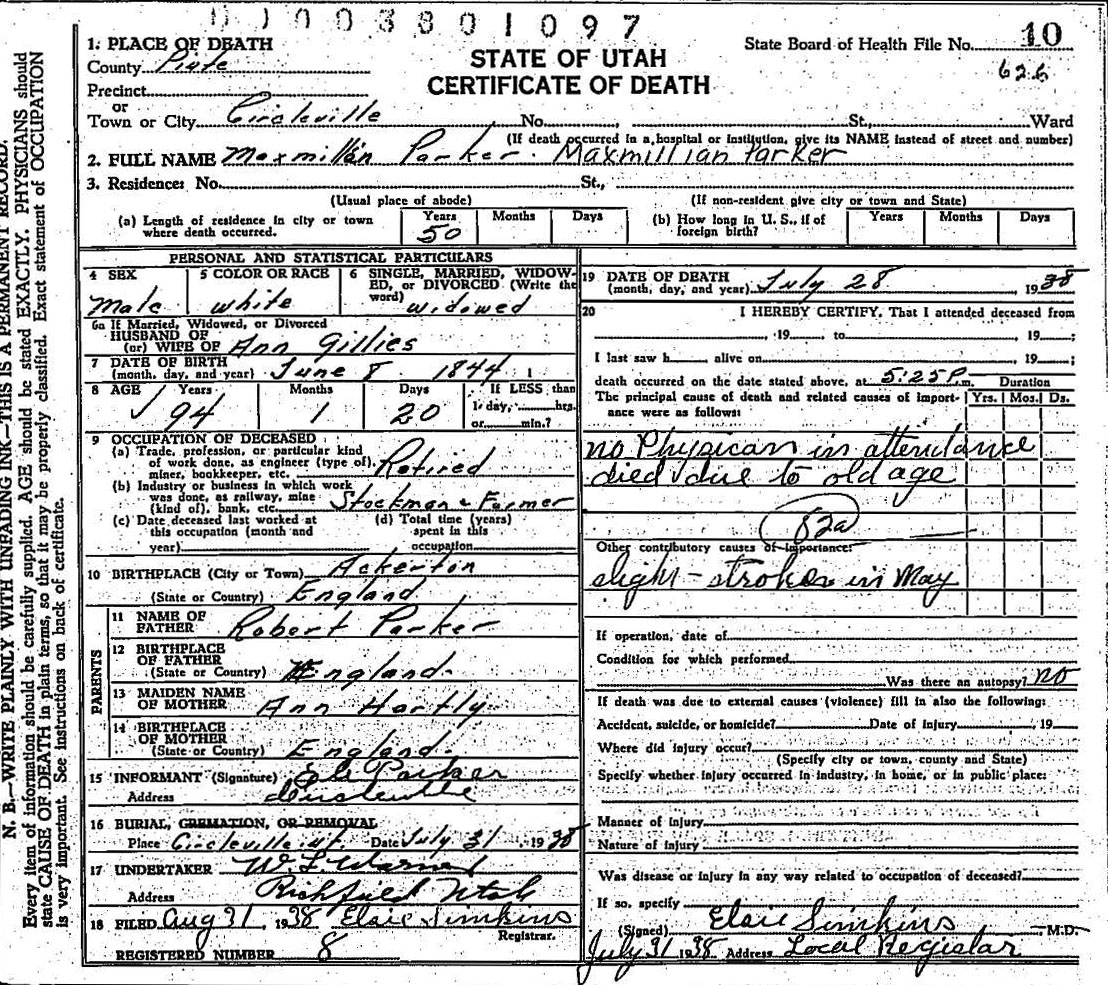 D 1 0 0 3 8 0 1 0 9 7
10
1: PLACE OF DEATH
County Piute
Precinct
or
Town or City Circleville No. St., Ward
STATE OF UTAH
CERTIFICATE OF DEATH
State Board of Health File No.
626
(If death occurred in a hospital or institution, give its NAME instead of street and number)
2. FULL NAME Maxmillan Parker. Maxmillian Parker
3. Residence: No. St.,
(Usual place of abode) (If non-resident give city or town and State)
(a) Length of residence in city or town where death occurred. Years 50 Months Days
(b) How long in U. S., if of foreign birth? Years Months Days
PERSONAL AND STATISTICAL PARTICULARS
4 SEX Male
5 COLOR OR RACE white
6 SINGLE, MARRIED, WIDOWED, or DIVORCED (Write the word) widowed
6a If Married, Widowed, or Divorced
HUSBAND OF
(or) WIFE OF Ann Gillies
7 DATE OF BIRTH
(month, day, and year) June 8 1844
8 AGE Years 94 Months 1 Days 20 If LESS than
1 day, hrs.
or min.?
9 OCCUPATION OF DECEASED
(a) Trade, profession, or particular kind
of work done, as engineer (type of),
miner, bookkeeper, etc. Retired
(b) Industry or business in which work
was done, as railway, mine
(kind of), bank, etc. Stockman & Farmer
(c) Date deceased last worked at
this occupation (month and
year)
(d) Total time (years)
spent in this
occupation
10 BIRTHPLACE (City or Town) Ackerton
(State or Country) England
PARENTS
11 NAME OF
FATHER Robert Parker
12 BIRTHPLACE
OF FATHER
(State or Country) England
13 MAIDEN NAME
OF MOTHER Ann Hartly
14 BIRTHPLACE
OF MOTHER
(State or Country) England
15 INFORMANT (Signature) Eli Parker
Address Circleville
16 BURIAL, CREMATION, OR REMOVAL
Place Circleville, Ut. Date July 31, 1938
17 UNDERTAKER
Address Richfield Utah
18 FILED Aug 31, 1938 Elsie Simkins
Registrar.
REGISTERED NUMBER 8
19 DATE OF DEATH
(month, day, and year) July 28, 1938
20 I HEREBY CERTIFY, That I attended deceased from
, 19 , to , 19 ;
I last saw h alive on , 19 ;
death occurred on the date stated above, at 5:25 P.m. Duration
The principal cause of death and related causes of importance were as follows: Yrs. Mos. Ds.
no Physican in attendance
died due to old age
82a
Other contributory causes of importance:
slight - strokes in May
If operation, date of
Condition for which performed
Was there an autopsy? no
If death was due to external causes (violence) fill in also the following:
Accident, suicide, or homicide? Date of injury , 19
Where did injury occur?
(Specify city or town, county and State)
Specify whether injury occurred in industry, in home, or in public place:
Manner of injury
Nature of injury
Was disease or injury in any way related to occupation of deceased?
If so, specify
(Signed) Elsie Simkins M.D.
July 31 1938 Address Local Registar
N. B.—WRITE PLAINLY WITH UNFADING INK—THIS IS A PERMANENT RECORD.
Every item of information should be carefully supplied. AGE should be stated EXACTLY. PHYSICIANS should
state CAUSE OF DEATH in plain terms, so that it may be properly classified. Exact statement of OCCUPATION
is very important. See instructions on back of certificate.